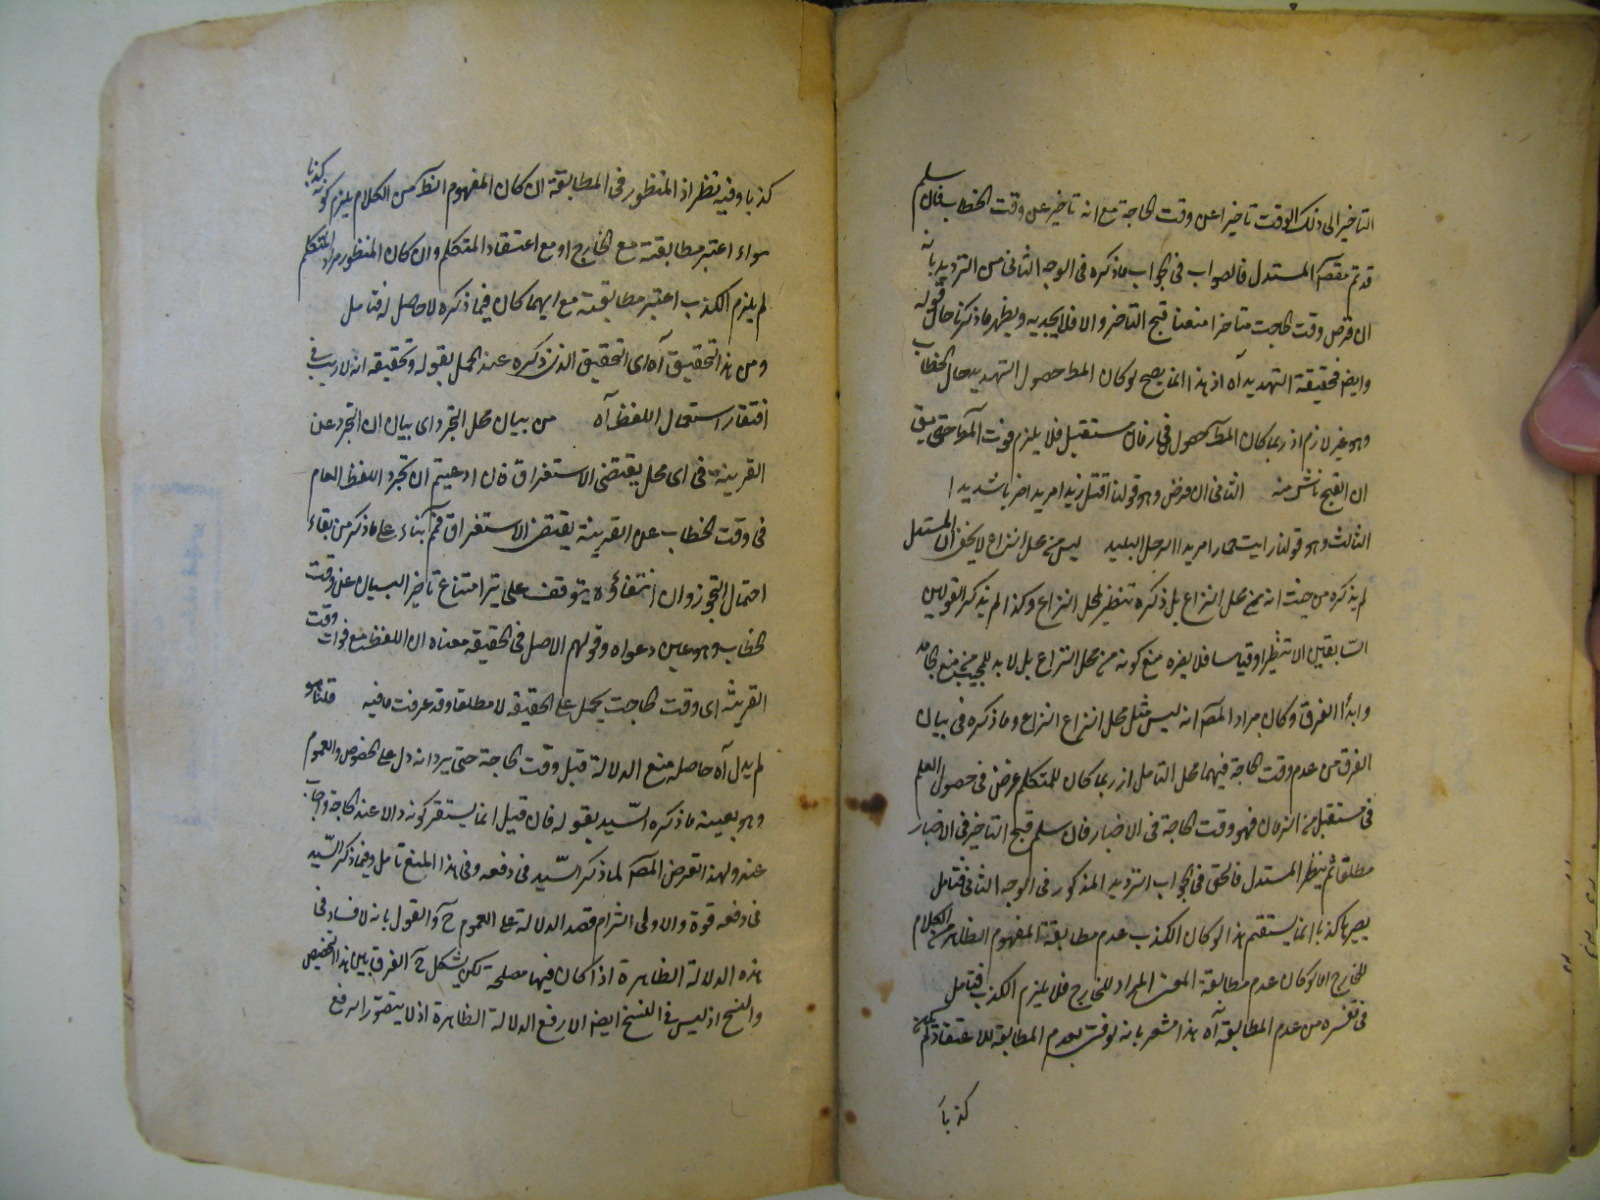 التاخير الى ذلك الوقت تاخيرا عن وقت الحاجة مع انه تاخير عن وقت الخطاب فان سلم
قد تم مقصد المستدل فالصواب فى الجواب ما ذكره فى الوجه الثانى من الترديد بانه
ان فرض وقت الحاجت متاخرا منعنا قبح التاخير والا فلا يجديه ويظهر ما ذكرنا حال قوله
وايضا فحقيقة التهديد آه اذ هذا انما يصح لو كان المط حصول التهديد حال الخطاب
وهو غير لازم اذ ربما كان المط حصول فى زمان مستقبل فلا يلزم فوت المط حتى يق
ان القبح ناش منه الثانى ان فرض وهو قولنا اقتل زيدا مريدا ضربا شديدا
الثالث وهو قولنا رايت حمارا مريدا الرجل البليد ليس من محل النزاع لا يخفى ان المستدل
لم يذكره من حيث انه من محل النزاع بل ذكره تنظير لمحل النزاع وكذا لم يذكر القولين
السابقين الا تنظيرا وقياسا فلا يضره منع كونه من محل النزاع بل لا بد للمجيب من منع الجامع
وابدأ الفرق وكان مراد المصه انه ليس مثل محل النزاع النزاع وما ذكره فى بيان
الفرق من عدم وقت الحاجة فيهما محل التامل اذ ربما كان للمتكلم غرض فى حصول العلم
فى مستقبل من الزمان فهو وقت الحاجة فى الاخبار فان سلم قبح التاخير فى الاخبار
مطلقا تم تنظر المستدل فالحق فى الجواب الترديد المذكور فى الوجه الثانى فتامل
يصيرها كذبا انما يستقيم هذا لو كان الكذب عدم مطابقة المفهوم الظاهر من الكلام
للخارج اما لو كان عدم مطابقة المعنى المراد للخارج فلا يلزم الكذب فتامل
فى تفسره من عدم المطابقة آه هذا مشعر بانه لو فسر بعدم المطابقة للاعتقاد لم يكن
كذبا
كذبا وفيه نظر اذ المنظور فى المطابقة ان كان المفهوم الظ من الكلام يلزم كونه كذبا
سواء اعتبر مطابقته مع الخارج او مع اعتقاد المتكلم وان كان المنظور مراد المتكلم
لم يلزم الكذب اعتبر مطابقته مع ايهما كان فيما ذكره لا حاصل له فتامل
ومن هذا التحقيق آه اى التحقيق الذى ذكره عند الحمل بقوله وتحقيقه انه لا ريب فى
افتقار استعمال اللفظ آه من بيان محل التجرد اى بيان ان التجرد عن
القرينة فى اى محل يقتضى الاستغراق فان ادعيتم ان تجرد اللفظ العام
فى وقت الخطاب عن القرينة يقتضى الاستغراق فمم بناء على ما ذكر من بقاء
احتمال التجوز وان انتفاؤه يتوقف على ثبر امتناع تاخير البيان عن وقت
الخطاب وهو عين دعواه وقولهم الاصل فى الحقيقة معناه ان اللفظ مع فوات وقت
القرينة اى وقت الحاجت يحمل على الحقيقة لا مطلقا وقد عرفت ما فيه قلنا هو
لم يدل آه حاصله منع الدلالة قبل وقت الحاجة حتى يرد انه دل على الخصوص والعموم
وهو بعينه ما ذكره السيد بقوله فان قيل انما يستقر كونه دالا عند الحاجة واجاب
عنه ولهذا تعرض المصه لما ذكره السيد فى دفعه وفى هذا المنع تامل وفيما ذكر السيد
فى دفعه قوة والاولى التزام قصد الدلالة على العموم ح والقول بانه لا فساد فى
هذه الدلالة الظاهرة اذا كان فيها مصلحة لكن يشكل ح الفرق بين هذا التخصيص
والنسخ اذ ليس فى النسخ ايضا الا رفع الدلالة الظاهرة اذ لا يتصور الرفع